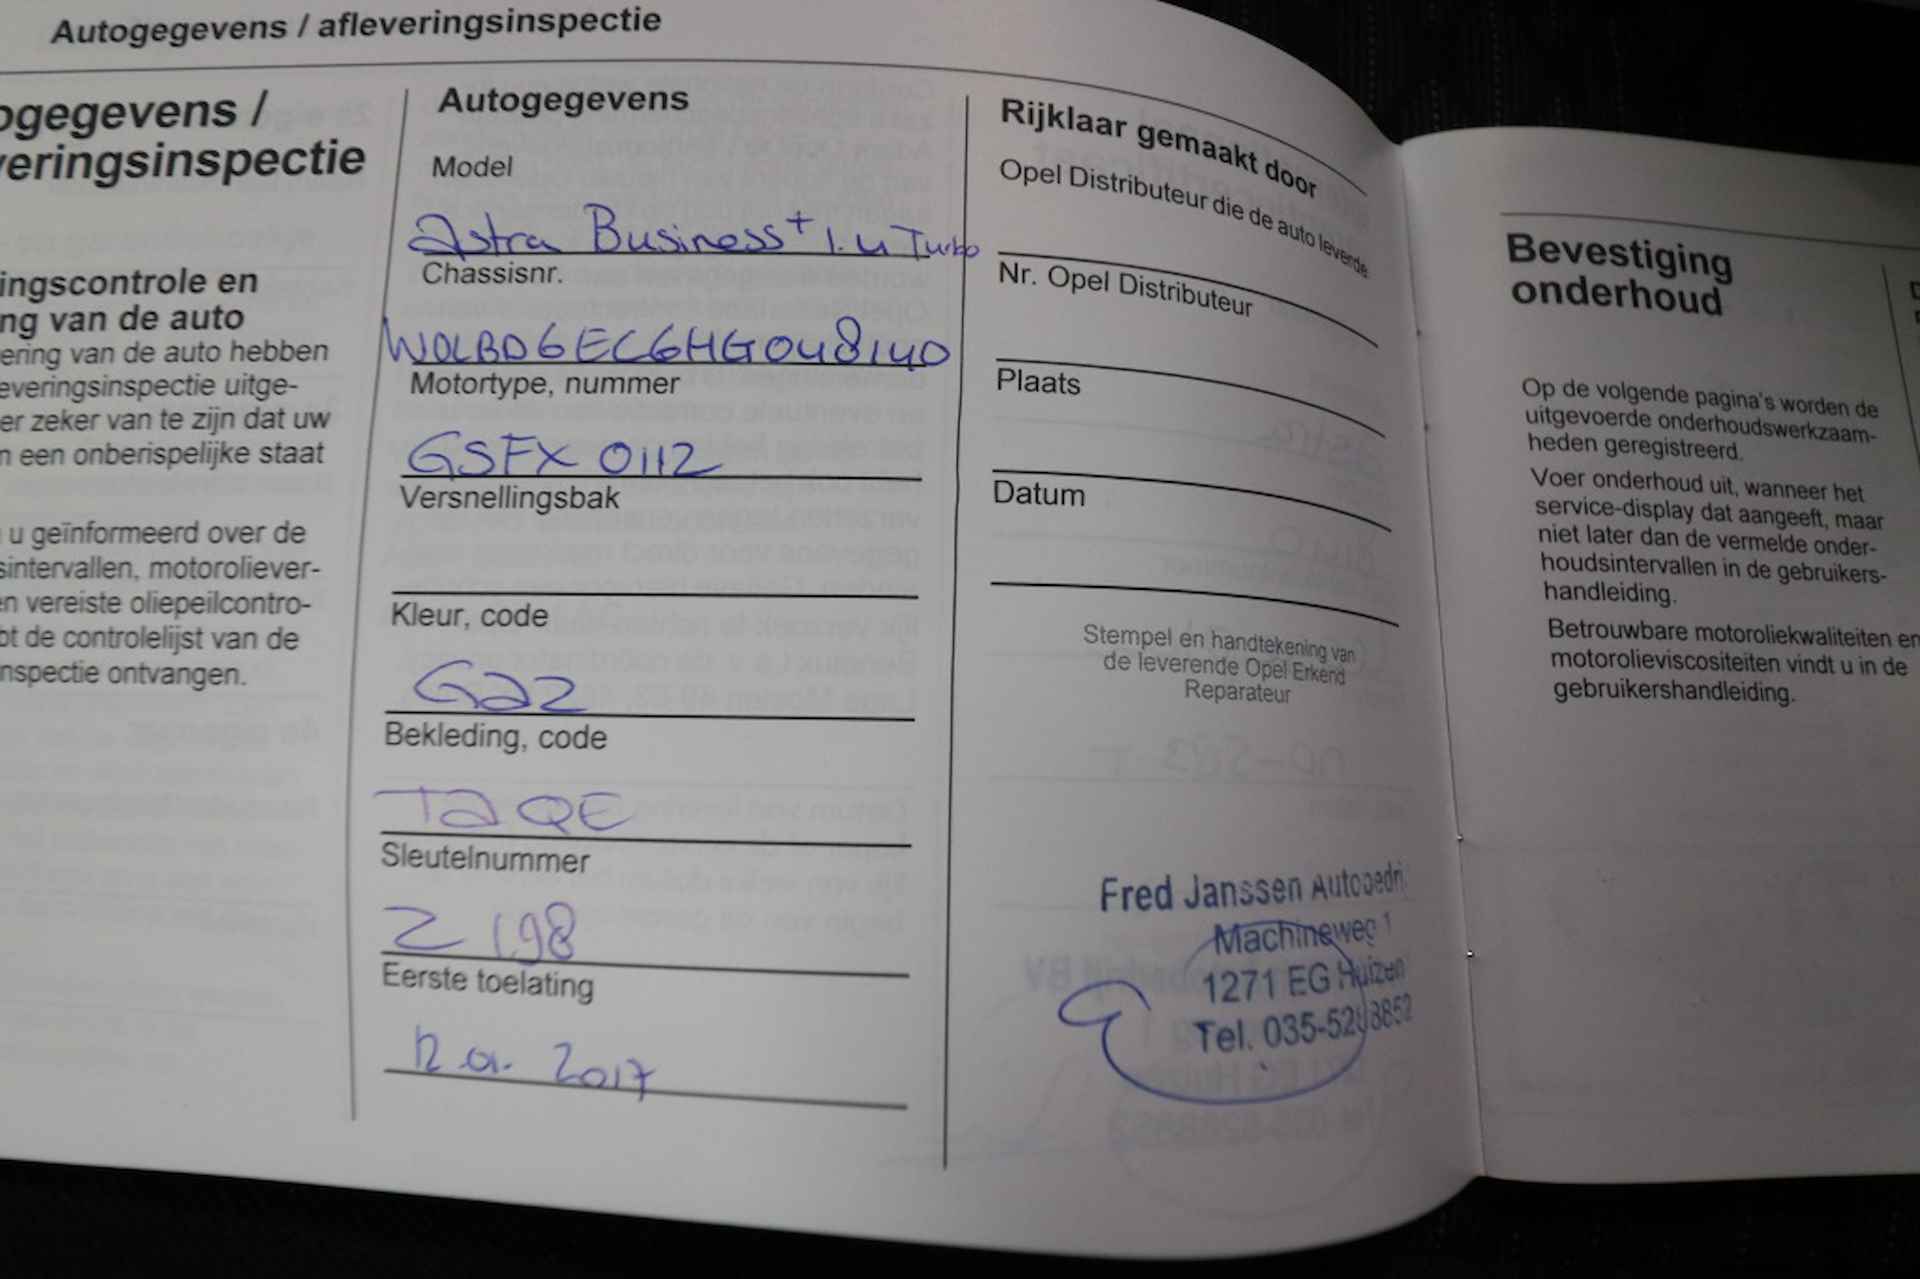 Autogegevens / afleveringsinspectie
ogegevens /
veringsinspectie
ingscontrole en
ng van de auto
ering van de auto hebben
everingsinspectie uitge-
er zeker van te zijn dat uw
n een onberispelijke staat
u geïnformeerd over de
sintervallen, motoroliever-
en vereiste oliepeilcontro-
bt de controlelijst van de
nspectie ontvangen.
Autogegevens
Model
Astra Business+ 1.4 Turbo
Chassisnr.
W0LBD6EC6HG048140
Motortype, nummer
GSFX 0112
Versnellingsbak
Kleur, code
GAZ
Bekleding, code
TAQE
Sleutelnummer
Z 198
Eerste toelating
12.01.2017
Rijklaar gemaakt door
Opel Distributeur die de auto leverde
Nr. Opel Distributeur
Plaats
Datum
Stempel en handtekening van
de leverende Opel Erkend
Reparateur
Fred Janssen Autobedri
Machineweg 1
1271 EG Huizen
Tel. 035-5268852
Bevestiging
onderhoud
Op de volgende pagina's worden de
uitgevoerde onderhoudswerkzaam-
heden geregistreerd.
Voer onderhoud uit, wanneer het
service-display dat aangeeft, maar
niet later dan de vermelde onder-
houdsintervallen in de gebruikers-
handleiding.
Betrouwbare motoroliekwaliteiten en
motorolieviscositeiten vindt u in de
gebruikershandleiding.